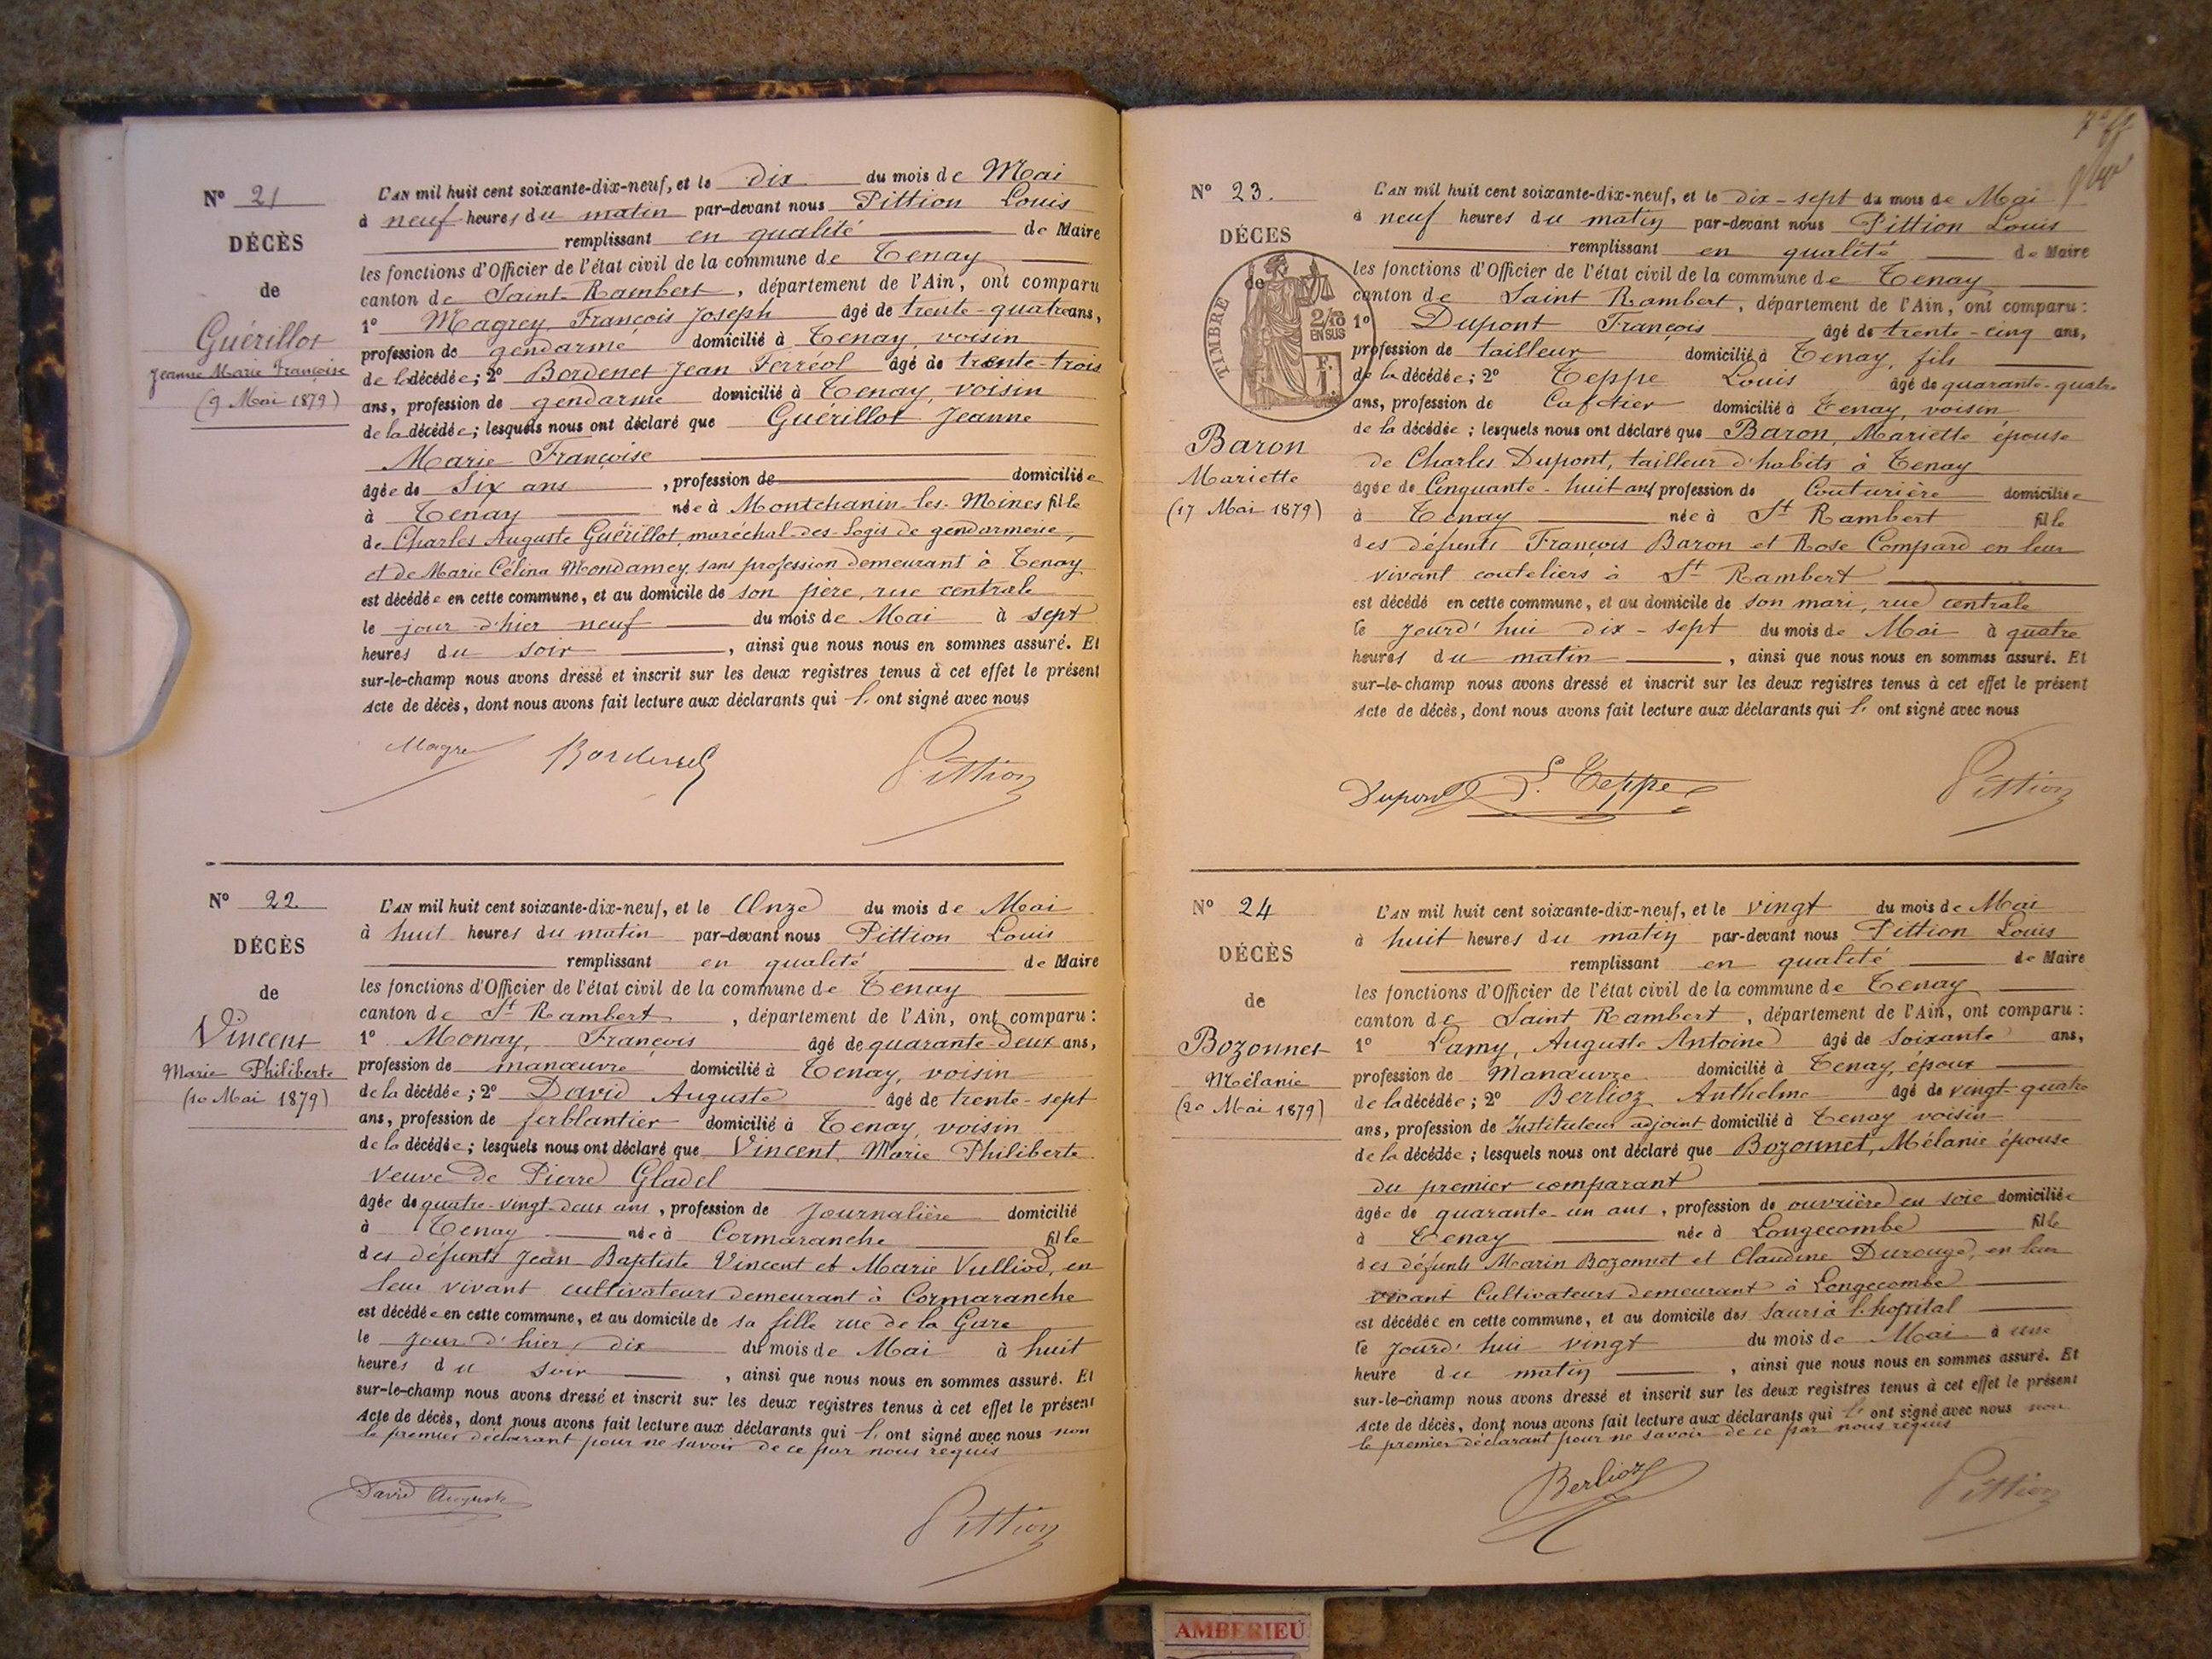 N° 21
DÉCÈS
de
Guérillot
Jeanne Marie Françoise
(9 Mai 1879)
L'AN mil huit cent soixante-dix-neuf, et le dix du mois de Mai
à neuf heures du matin par-devant nous Pittion Louis
remplissant en qualité de Maire
les fonctions d'Officier de l'état civil de la commune de Tenay
canton de Saint-Rambert, département de l'Ain, ont comparu
1° Magrey, François Joseph âgé de trente-quatre ans,
profession de gendarme domicilié à Tenay, voisin
de la décédée; 2° Bordenet Jean Ferréol âgé de trente-trois
ans, profession de gendarme domicilié à Tenay, voisin
de la décédée; lesquels nous ont déclaré que Guérillot Jeanne
Marie Françoise
âgée de Six ans, profession de domiciliée
à Tenay née à Montchanin-les-Mines fille
de Charles Auguste Guérillot, maréchal-des-Logis de gendarmerie,
et de Marie Célina Mondamey, sans profession demeurant à Tenay
est décédée en cette commune, et au domicile de son père, rue centrale
le jour d'hier neuf du mois de Mai à sept
heures du soir, ainsi que nous nous en sommes assuré. Et
sur-le-champ nous avons dressé et inscrit sur les deux registres tenus à cet effet le présent
Acte de décès, dont nous avons fait lecture aux déclarants qui l' ont signé avec nous
Magrey Bordenet Pittion
N° 22
DÉCÈS
de
Vincent
Marie Philiberte
(10 Mai 1879)
L'AN mil huit cent soixante-dix-neuf, et le Onze du mois de Mai
à huit heures du matin par-devant nous Pittion Louis
remplissant en qualité de Maire
les fonctions d'Officier de l'état civil de la commune de Tenay
canton de St Rambert, département de l'Ain, ont comparu :
1° Monay, François âgé de quarante-deux ans,
profession de manœuvre domicilié à Tenay, voisin
de la décédée; 2° David Auguste âgé de trente-sept
ans, profession de ferblantier domicilié à Tenay, voisin
de la décédée; lesquels nous ont déclaré que Vincent, Marie Philiberte
veuve de Pierre Gladel
âgée de quatre-vingt-deux ans, profession de Journalière domicilié
à Tenay née à Cormaranche fille
des défunts Jean-Baptiste Vincent et Marie Vulliod, en
leur vivant cultivateurs demeurant à Cormaranche
est décédée en cette commune, et au domicile de sa fille rue de la Gare
le jour d'hier, dix du mois de Mai à huit
heures du soir, ainsi que nous nous en sommes assuré. Et
sur-le-champ nous avons dressé et inscrit sur les deux registres tenus à cet effet le présent
Acte de décès, dont nous avons fait lecture aux déclarants qui l' ont signé avec nous non
le premier déclarant pour ne savoir de ce par nous requis
David Auguste Pittion
N° 23.
DÉCES
de
TIMBRE
2/10
EN SUS
Baron
Mariette
(17 Mai 1879)
L'AN mil huit cent soixante-dix-neuf, et le dix-sept du mois de Mai
à neuf heures du matin par-devant nous Pittion Louis
remplissant en qualité de Maire
les fonctions d'Officier de l'état civil de la commune de Tenay
canton de Saint Rambert, département de l'Ain, ont comparu :
1° Dupont François âgé de trente-cinq ans,
profession de tailleur domicilié à Tenay, fils
de la décédée; 2° Teppe Louis âgé de quarante-quatre
ans, profession de Cafetier domicilié à Tenay, voisin
de la décédée; lesquels nous ont déclaré que Baron, Mariette épouse
de Charles Dupont, tailleur d'habits à Tenay
âgée de Cinquante-huit ans profession de Couturière domiciliée
à Tenay née à St Rambert fille
des défunts François Baron et Rose Compard en leur
vivant couteliers à St Rambert
est décédé en cette commune, et au domicile de son mari, rue centrale
le jourd'hui dix-sept du mois de Mai à quatre
heures du matin, ainsi que nous nous en sommes assuré. Et
sur-le-champ nous avons dressé et inscrit sur les deux registres tenus à cet effet le présent
Acte de décès, dont nous avons fait lecture aux déclarants qui l' ont signé avec nous
Dupont L. Teppe Pittion
N° 24
DÉCÈS
de
Bozonnet
Mélanie
(20 Mai 1879)
L'AN mil huit cent soixante-dix-neuf, et le vingt du mois de Mai
à huit heures du matin par-devant nous Pittion Louis
remplissant en qualité de Maire
les fonctions d'Officier de l'état civil de la commune de Tenay
canton de Saint Rambert, département de l'Ain, ont comparu :
1° Lamy, Auguste Antoine âgé de Soixante ans,
profession de Manœuvre domicilié à Tenay, époux
de la décédée; 2° Berlioz Anthelme âgé de vingt-quatre
ans, profession de Instituteur adjoint domicilié à Tenay voisin
de la décédée; lesquels nous ont déclaré que Bozonnet, Mélanie épouse
du premier comparant
âgée de quarante-un ans, profession de ouvrière en soie domiciliée
à Tenay née à Longecombe fille
des défunts Marin Bozonnet et Claudine Durouge, en leur
vivant Cultivateurs demeurant à Longecombe
est décédée en cette commune, et au domicile des Sœurs à l'hopital
le jourd'hui vingt du mois de Mai à une
heure du matin, ainsi que nous nous en sommes assuré. Et
sur-le-champ nous avons dressé et inscrit sur les deux registres tenus à cet effet le présent
Acte de décès, dont nous avons fait lecture aux déclarants qui l' ont signé avec nous non
le premier déclarant pour ne savoir de ce par nous requis
Berlioz Pittion
AMBERIEU